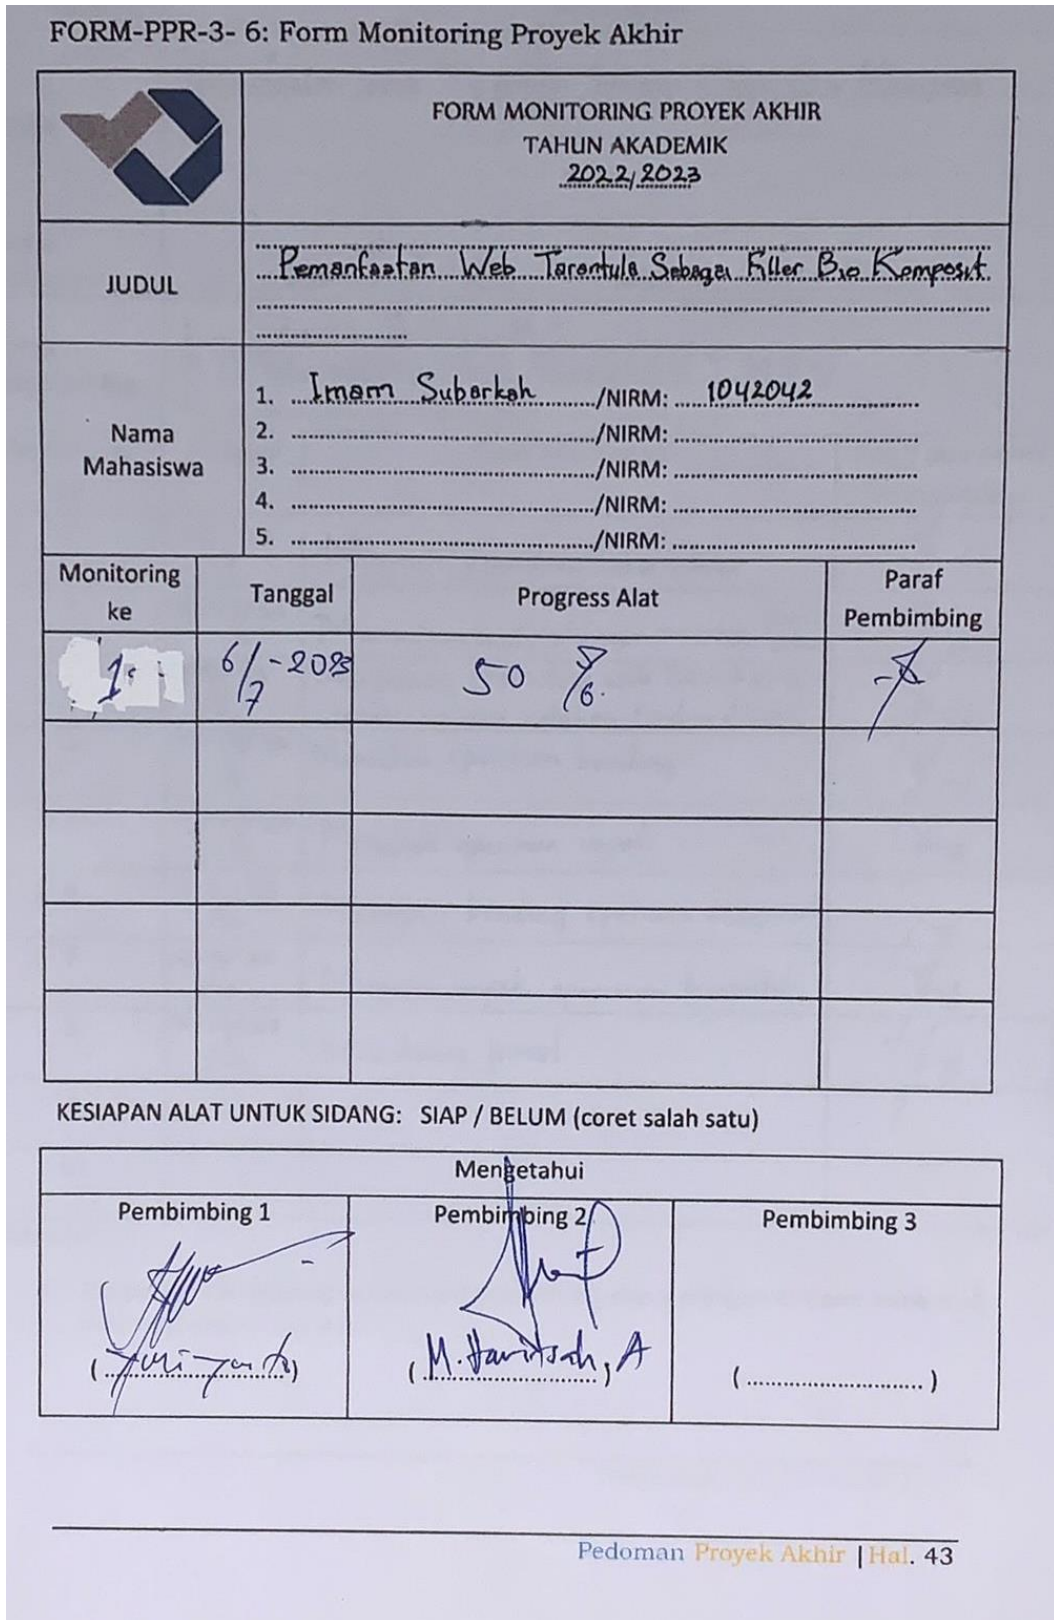 FORM-PPR-3- 6: Form Monitoring Proyek Akhir
FORM MONITORING PROYEK AKHIR
TAHUN AKADEMIK
2022/2023
JUDUL
Pemanfaatan Web Tarantula Sebagai Filler Bio Komposit
Nama
Mahasiswa
1. Imam Subarkah /NIRM: 1042042
2. /NIRM:
3. /NIRM:
4. /NIRM:
5. /NIRM:
Monitoring
ke
Tanggal
Progress Alat
Paraf
Pembimbing
1 6/7-2023 50 %
KESIAPAN ALAT UNTUK SIDANG: SIAP / BELUM (coret salah satu)
Mengetahui
Pembimbing 1 Pembimbing 2 Pembimbing 3
( ) (M. Haritsah, A ( )
Pedoman Proyek Akhir | Hal. 43